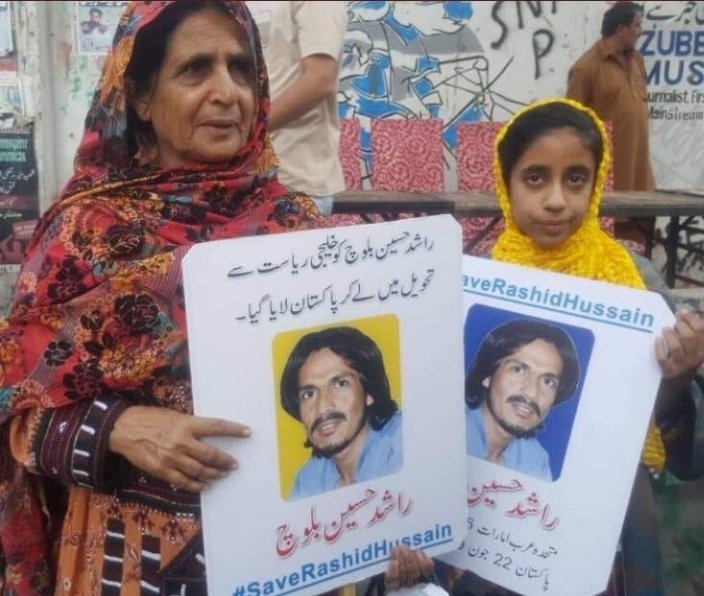 راشد حسین بلوچ کو خلیجی ریاست سے
تحویل میں لے کر پاکستان لایا گیا۔
راشد حسین بلوچ
#SaveRashidHussain
SaveRashidHussain
راشد حسین
متحدہ عرب امارات
پاکستان 22 جون
ZUBE
MUS
urnalist, Firs
Mainstream